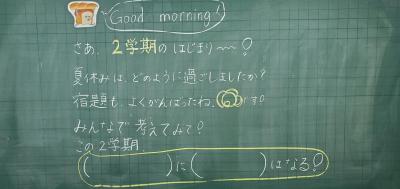 Good morning!
さあ、2学期の はじまり〜〜!
夏休みは、どのように過ごしましたか?
宿題も、よくがんばったね。です!
みんなで 考えてみて!
この2学期、
(　　　　)に(　　　　)はなる!